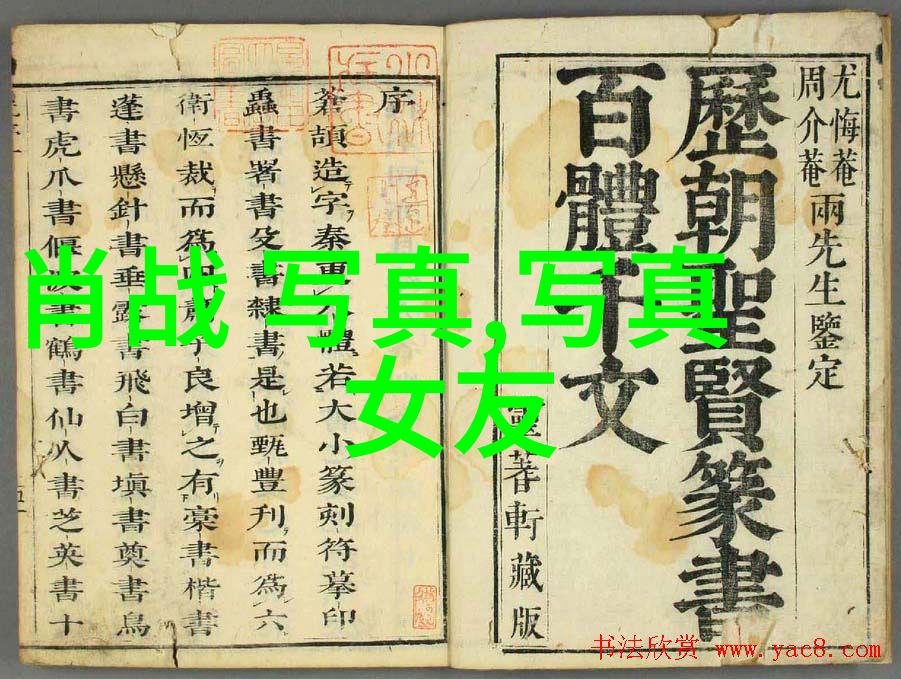 肖战 写真,写真
女友
尤悔菴
周介菴
兩先生鑒定
歷朝聖賢篆書
百體千文
蓍軒藏版
序
蒼頡造字秦更體若大小篆刻符摹印
蟲書署書殳書隸書是也甄豐刋而爲六
衛恆裁而爲四蕭子良增之有稾書楷書
蓬書懸針書垂露書飛白書塡書奠書鳥
書虎爪書偃波書鶴書仙人書芝英書十
书法欣赏 www.yac8.com